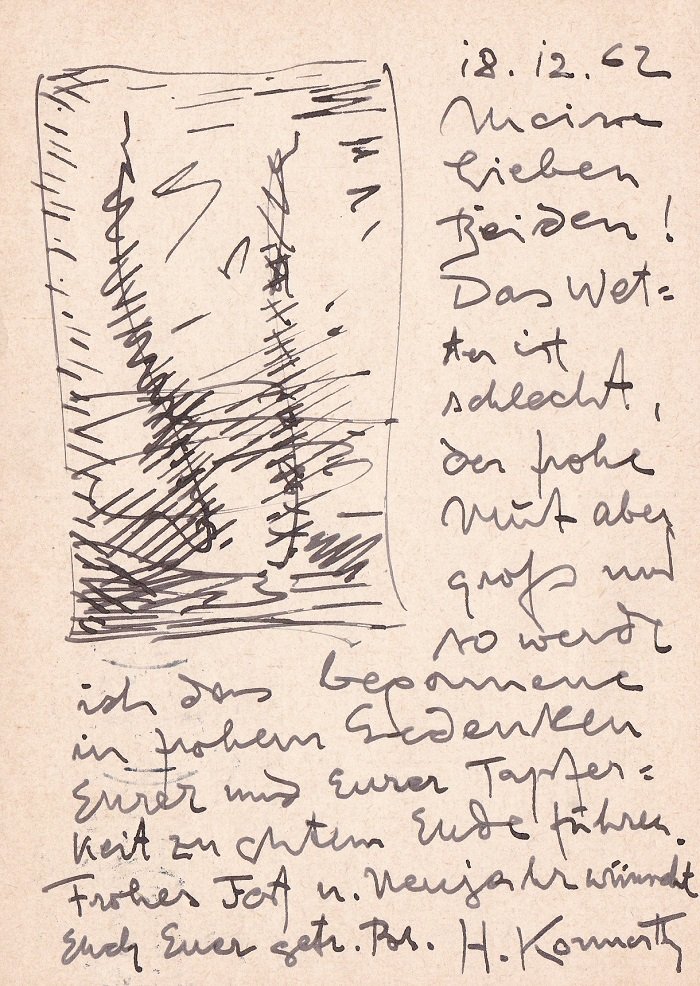 18.12.62
Meine
lieben
Beiden!
Das Wet=
ter ist
schlecht,
der frohe
Mut aber
groß und
so werde
ich das begonnene
in frohem Gedenken
Eurer und Eurer Tapfer=
keit zu gutem Ende führen.
Frohes Fest u. Neujahr wünscht
Euch Euer getr. H.